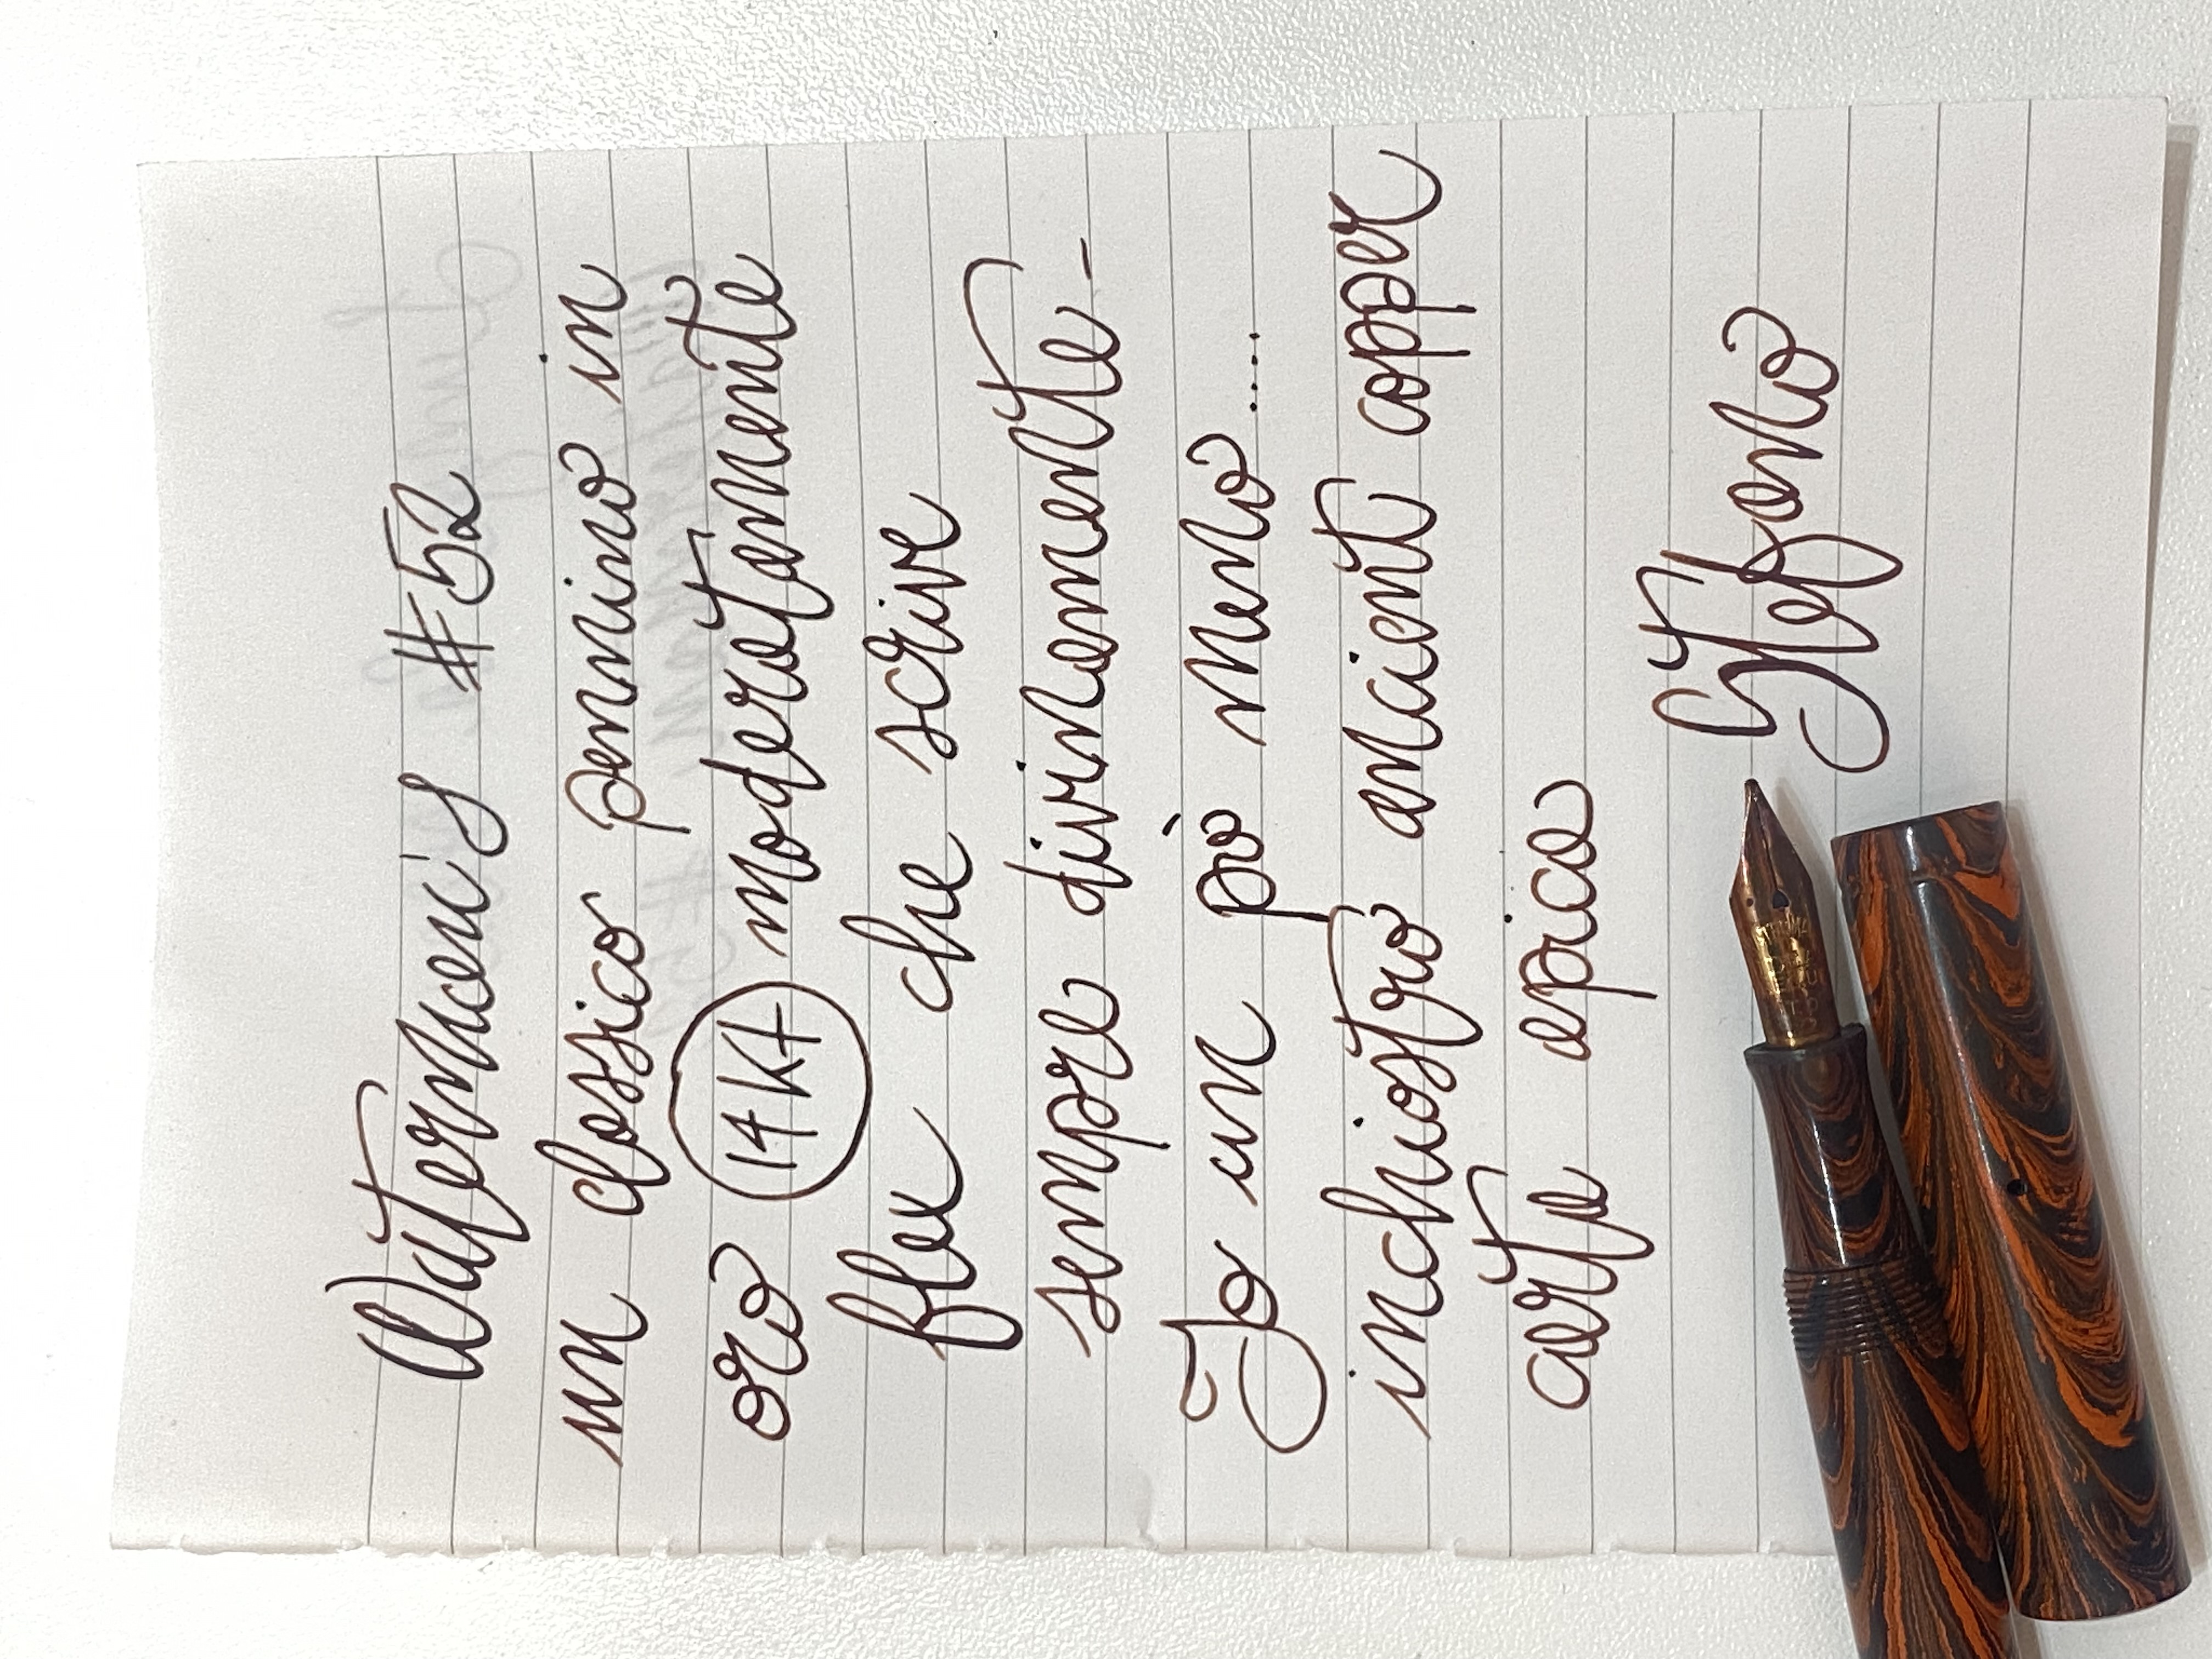 Waterman's #52
un classico pennino in
oro 14 Kt moderatamente
flex che scrive
sempre divinamente -
Io un pò meno .....
inchiostro ancient copper
arte epica
Stefano